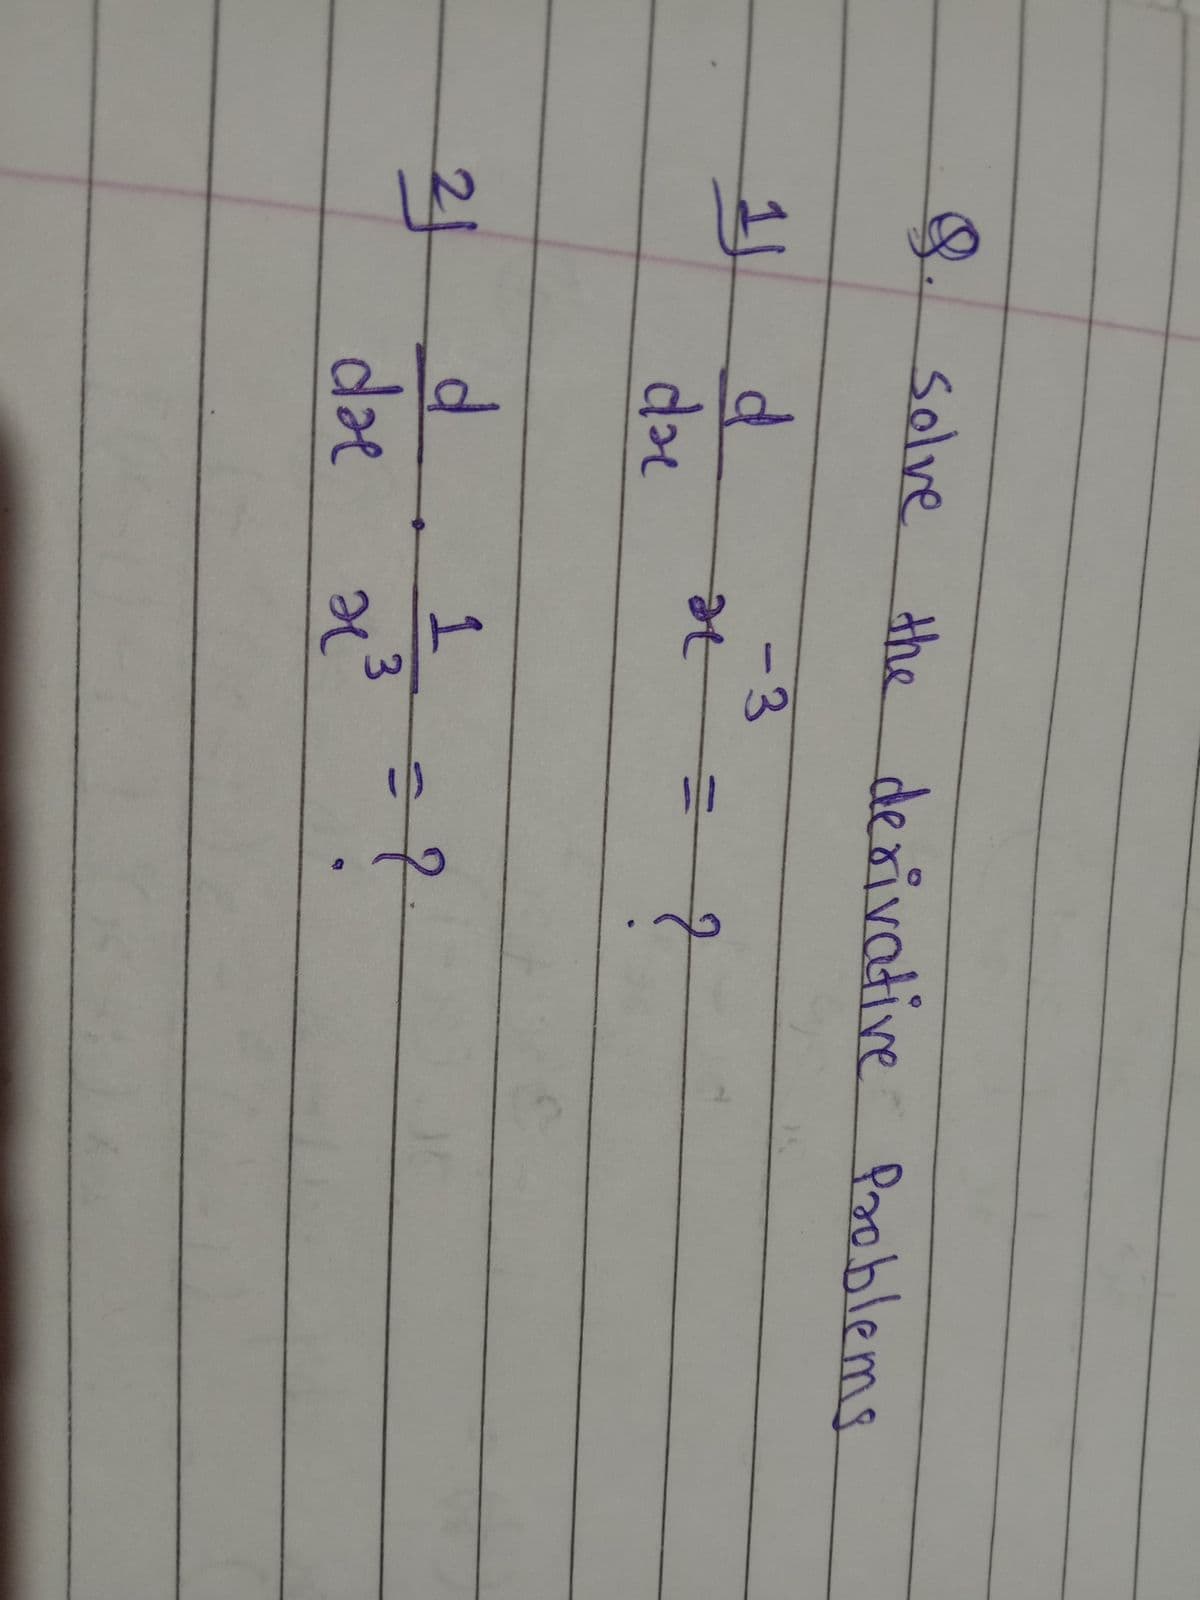 Q. Solve the derivative Problems
1) d/dx x⁻³ = ?
2) d/dx . 1/x³ = ?